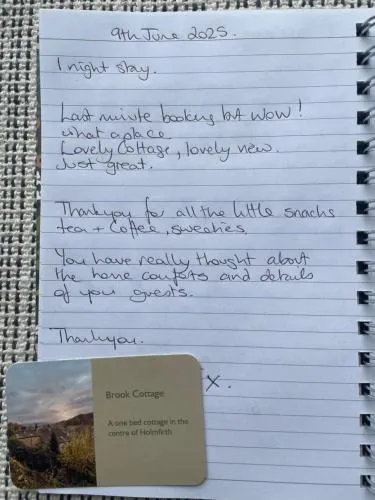 9th June 2025.
1 night stay.
Last minute booking but wow!
what a place
Lovely Cottage, lovely view.
Just great.
Thankyou for all the little snacks
tea + coffee, sweeties.
You have really thought about
the home comforts and details
of your guests.
Thankyou.
X.
Brook Cottage
A one bed cottage in the
centre of Holmfirth